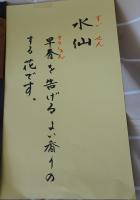 水仙
すい せん
早春を告げるよい香りの
そうしゅん
する花です。